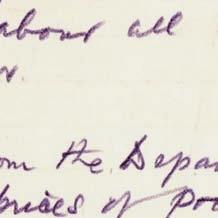 about all
om the Depar
prices of pro